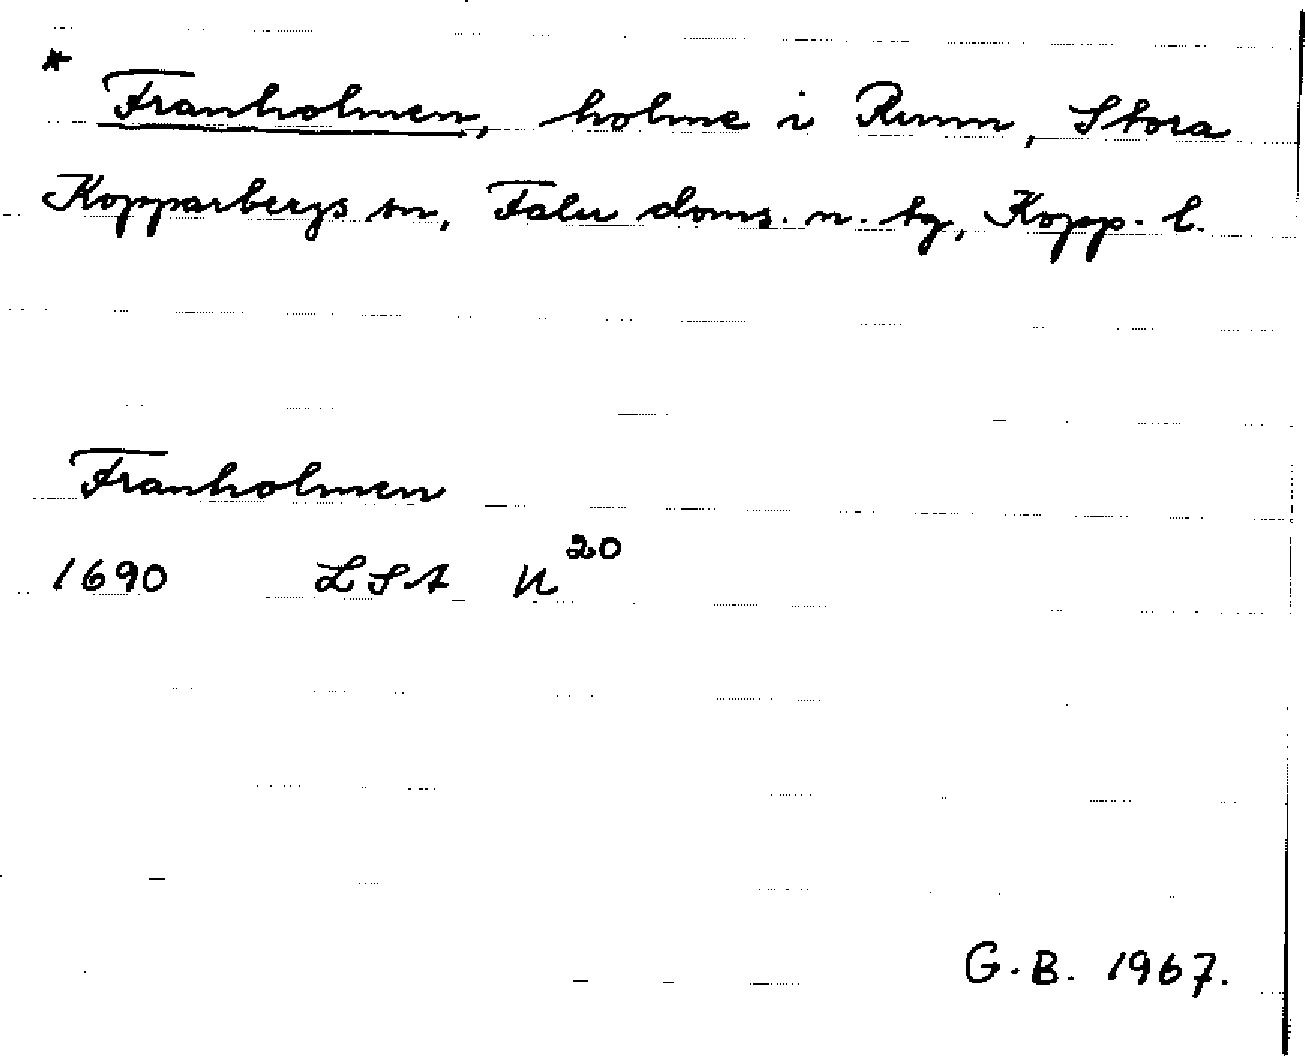 * Franholmen, holme i Runn, Stora
Kopparbergs sn, Falu doms. n. tg, Kopp. l.
Franholmen
1690 LSA U 20
G.B. 1967.